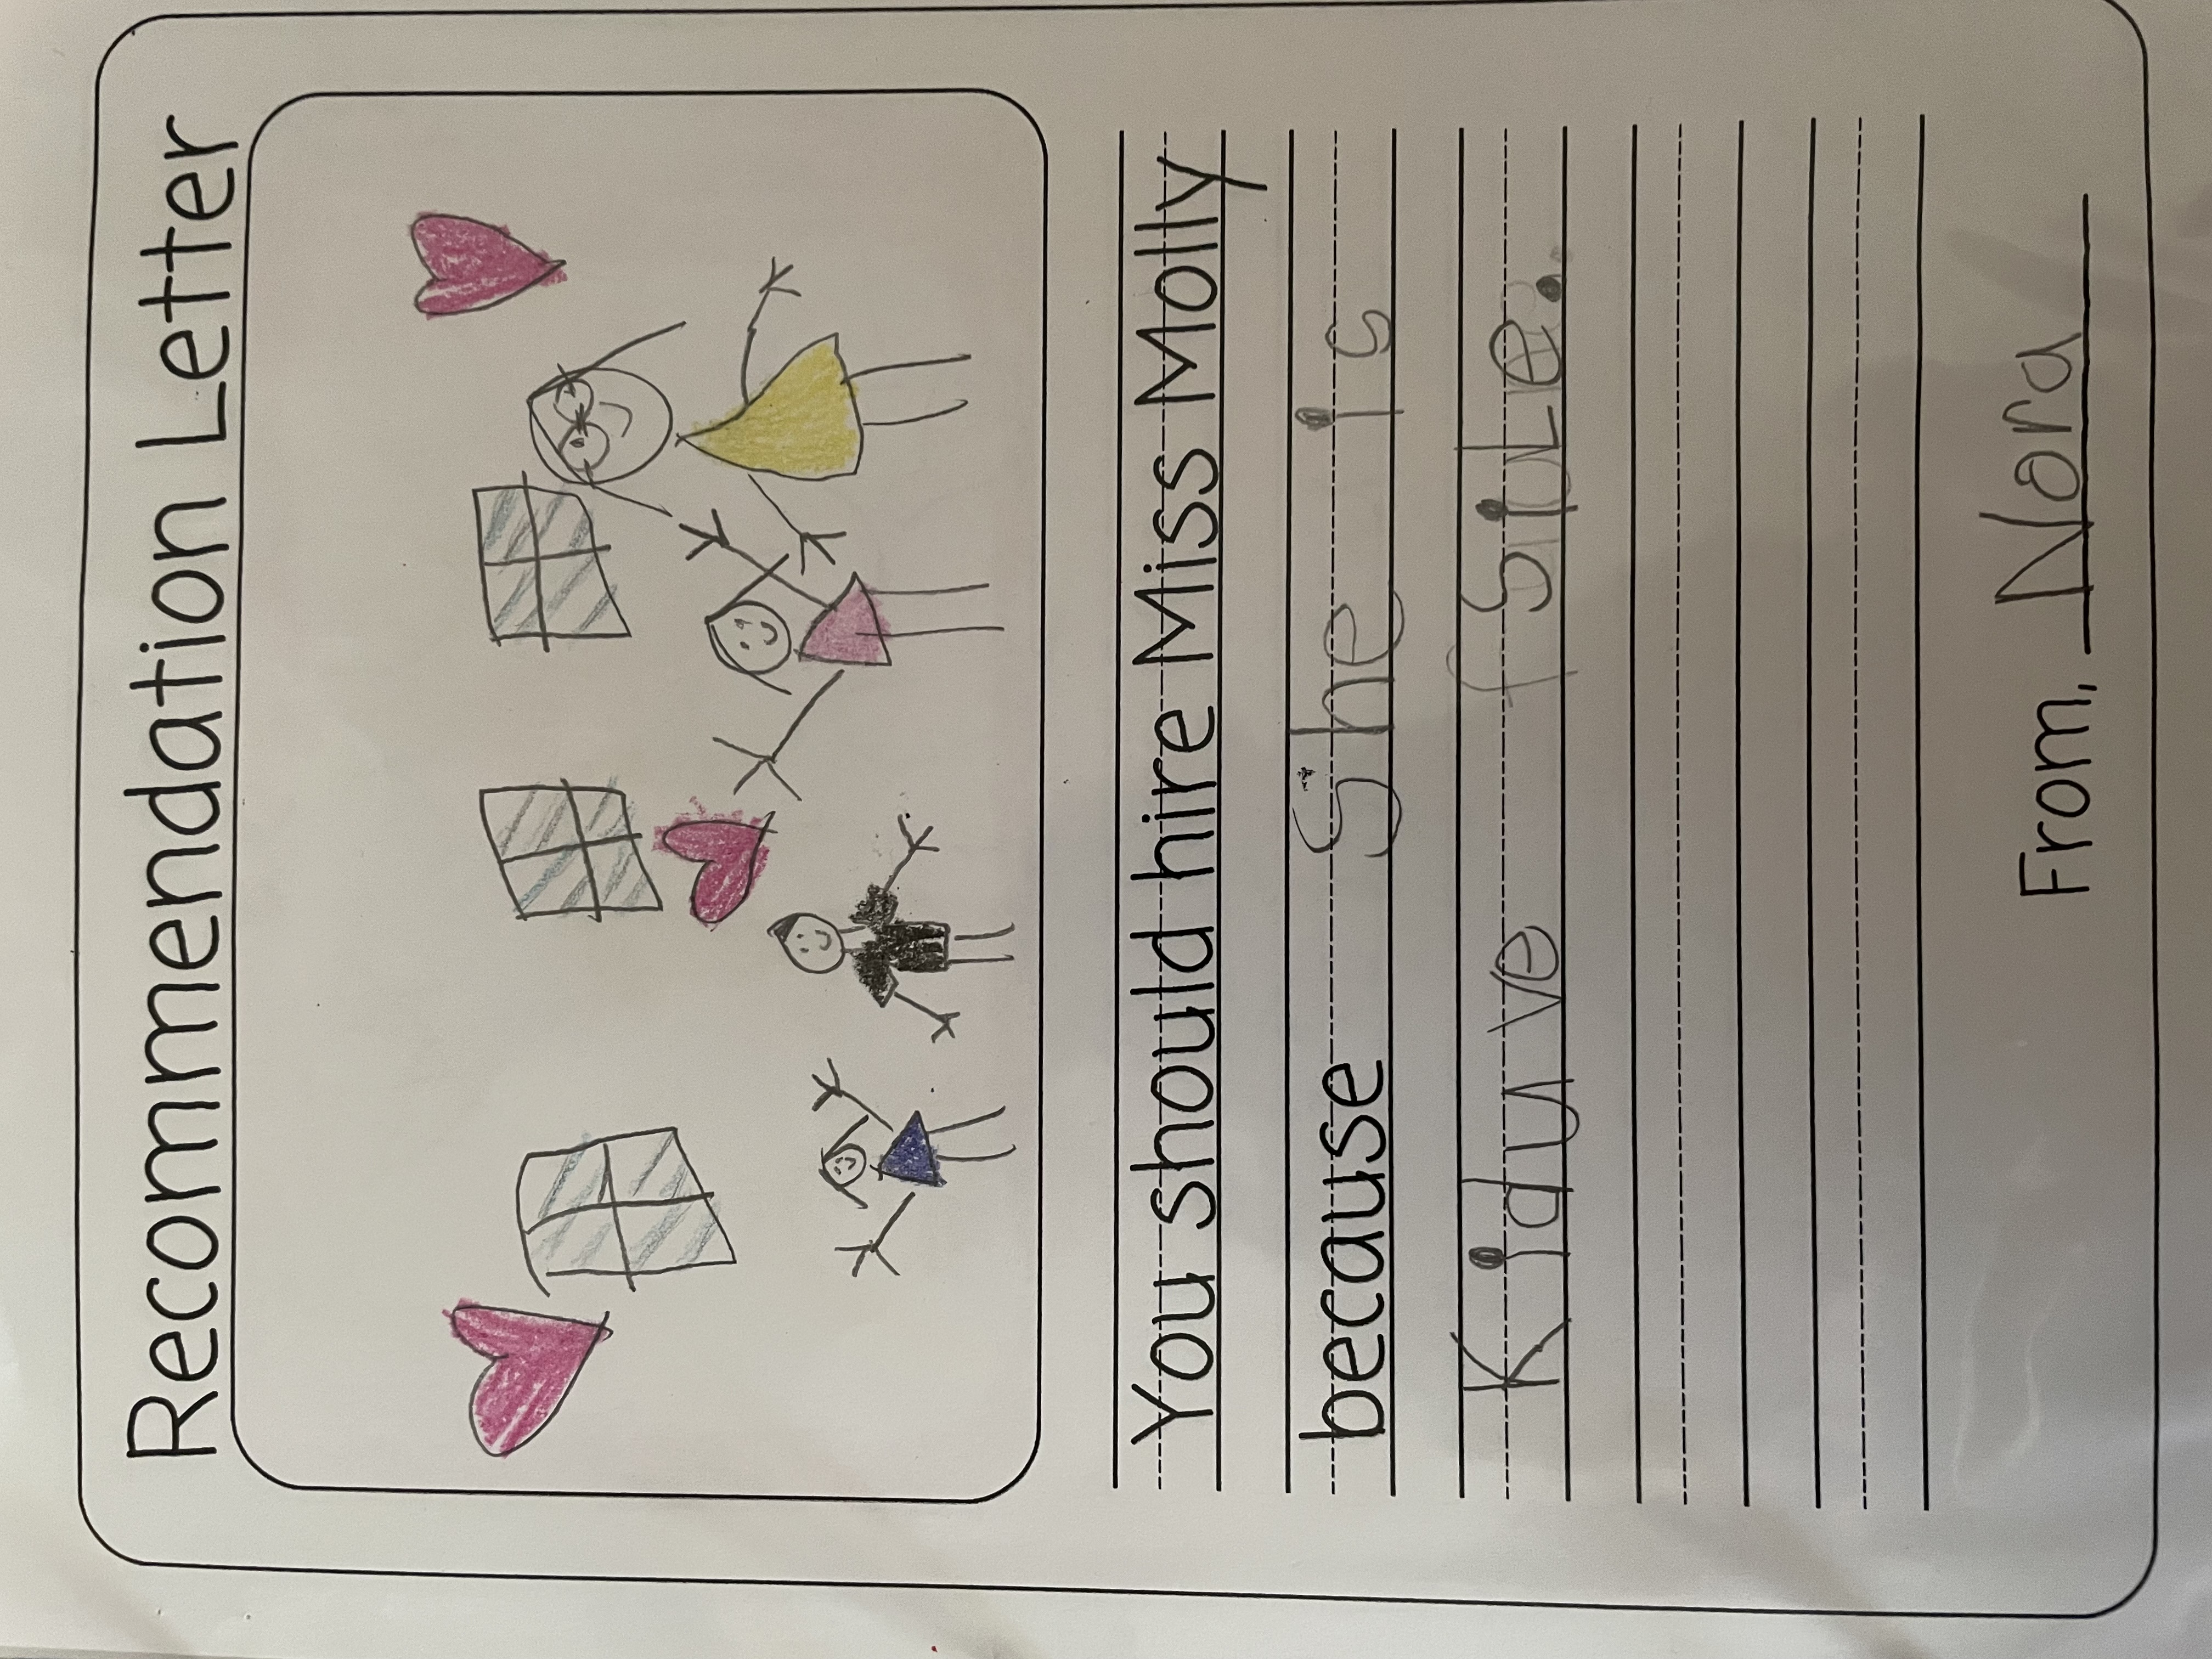 Recommendation Letter
You should hire Miss Molly
because She is
Kiduve SiLe.
From, Nora